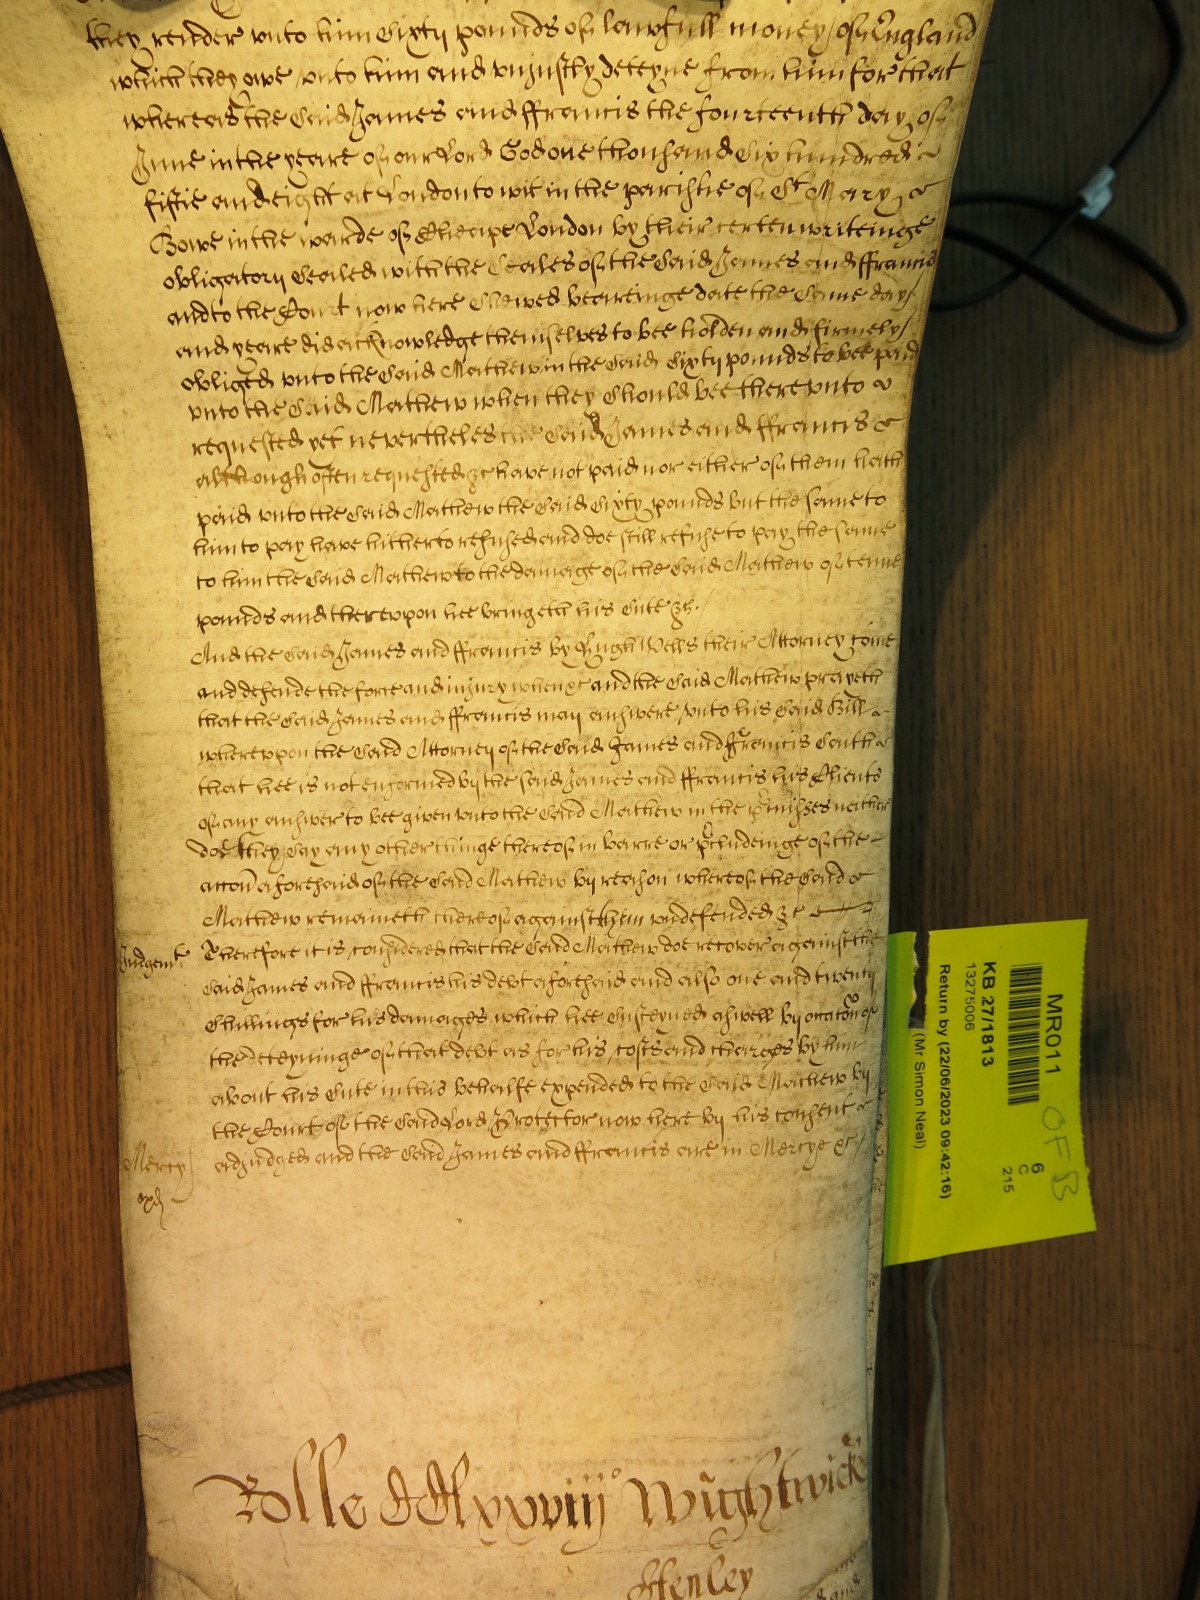 they render unto him Sixty pounds of lawfull money of England
which they owe unto him and uniustly deteyne from him for that
whereas the said James and ffrancis the fourteenth day of
June in the yeare of our Lord God one thousand six hundred
fiftie and eight at London to wit in the parishe of St Mary
Bowe in the warde of Cheape London by their certen writeinge
obligatory sealed with the seales of the said James and ffrancis
and to the Court now here shewed beareinge date the same day
and yeare did acknowledge themselves to bee holden and firmely
obliged unto the said Mathew in the said Sixty pounds to bee paid
unto the said Mathew when they should bee thereunto
requested yet nevertheles the said James and ffrancis
although often requested &c have not paid nor either of them hath
paid unto the said Mathew the said Sixty pounds but the same to
him to pay have hitherto refused and doe still refuse to pay the same
to him the said Mathew to the damage of the said Mathew of tenne
pounds and thereupon hee bringeth his sute &c.
And the said James and ffrancis by Hugh Wells their Attorney come
and defende the force and iniury when &c and the said Mathew prayeth
that the said James and ffrancis may answere unto his said Bill
whereupon the said Attorney of the said James and ffrancis saith
that hee is not enformed by the said James and ffrancis his Clients
of any answer to bee given unto the said Mathew in the p'misses neither
doe they say any other thinge thereof in barre or p'cludeinge of the
accon aforesaid of the said Mathew by reason whereof the said
Mathew remaineth thereof against them undefended &c
Judgemt Therefore it is considered that the said Mathew doe recover against the
said James and ffrancis his debt aforesaid and also one and twenty
shillings for his damages which hee susteyned aswell by occacon of
the deteyninge of that debt as for his costs and charges by him
about his sute in this behalfe expended to the said Mathew by
the Court of the said Lord Protector now here by his consent
adiudged and the said James and ffrancis are in Mercye &c
Mercy
Rolle CClxxviij Wightwick
Henley
MR011
OFB
KB 27/1813
13275006
6
C
215
Return by (22/06/2023 09:42:16)
(Mr Simon Neal)